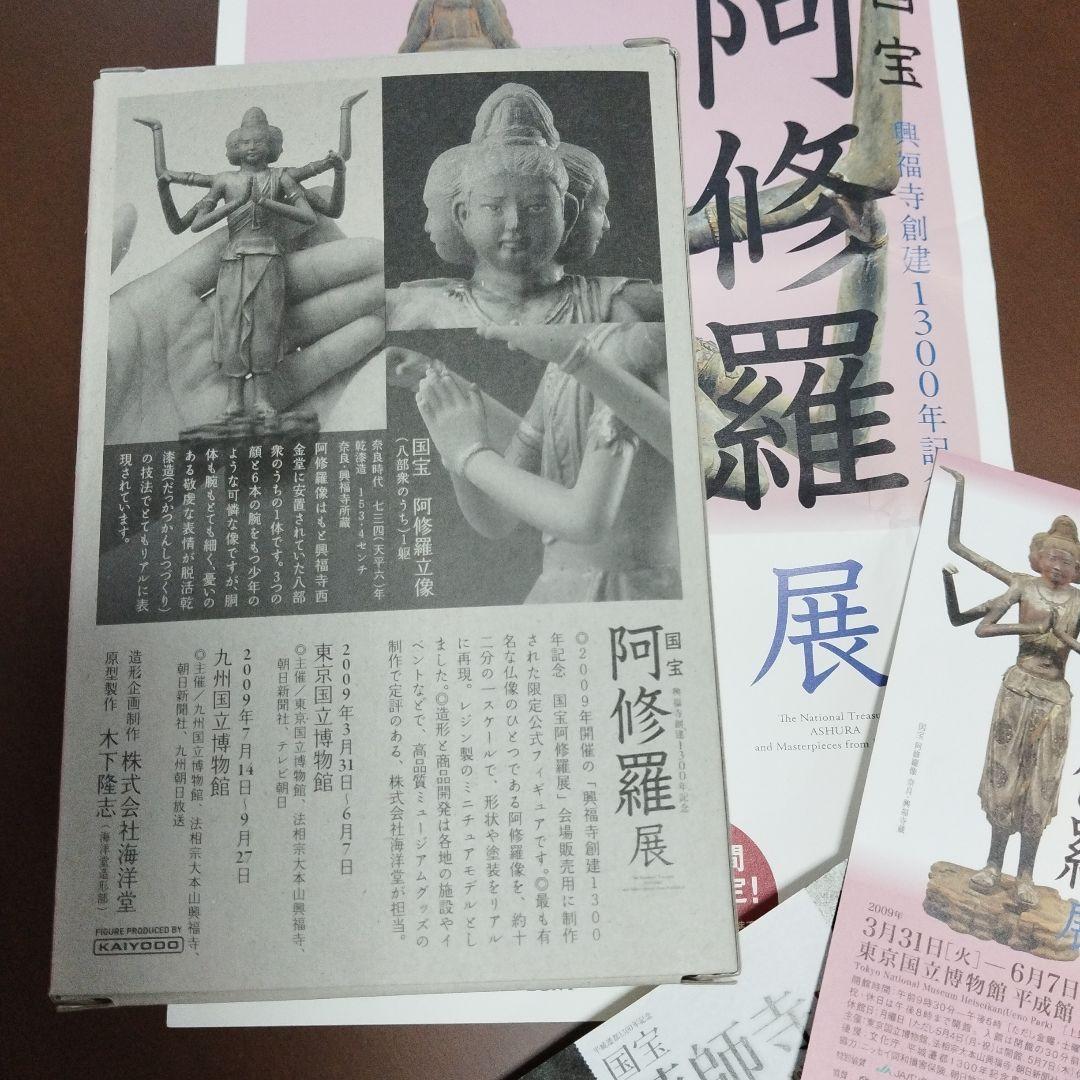 国宝　阿修羅立像
（八部衆のうち）1躯
奈良時代　七三四（天平六）年
乾漆造　153.4センチ
奈良・興福寺所蔵
阿修羅像はもと興福寺西
金堂に安置されていた八部
衆のうちの1体です。3つの
顔と6本の腕をもつ少年の
ような可憐な像ですが、胴
体も腕もとても細く、憂いの
ある敬虔な表情が脱活乾
漆造（だっかつかんしつづくり）
の技法でとてもリアルに表
現されています。
興福寺創建1300年記念
国宝
阿修羅展
◎2009年開催の「興福寺創建1300
年記念　国宝阿修羅展」会場販売用に制作
された限定公式フィギュアです。◎最も有
名な仏像のひとつである阿修羅像を、約十
二分の一スケールで、形状や塗装をリアル
に再現。レジン製のミニチュアモデルとし
ました。◎造形と商品開発は各地の施設やイ
ベントなどで、高品質ミュージアムグッズの
制作で定評のある、株式会社海洋堂が担当。
2009年3月31日～6月7日
東京国立博物館
◎主催／東京国立博物館、法相宗大本山興福寺、
朝日新聞社、テレビ朝日
2009年7月14日～9月27日
九州国立博物館
◎主催／九州国立博物館、法相宗大本山興福寺、
朝日新聞社、九州朝日放送
造形企画制作　株式会社海洋堂
原型製作　木下隆志（海洋堂造形部）
FIGURE PRODUCED BY
KAIYODO
国宝
阿修羅
展
興福寺創建1300年記
The National Treasu
ASHURA
and Masterpieces from
国宝 阿修羅像 奈良・興福寺蔵
羅展
2009年
3月31日[火]―6月7日
東京国立博物館 平成館
Tokyo National Museum Heiseikan(Ueno Park)
平城遷都1300年記念
国宝
師寺